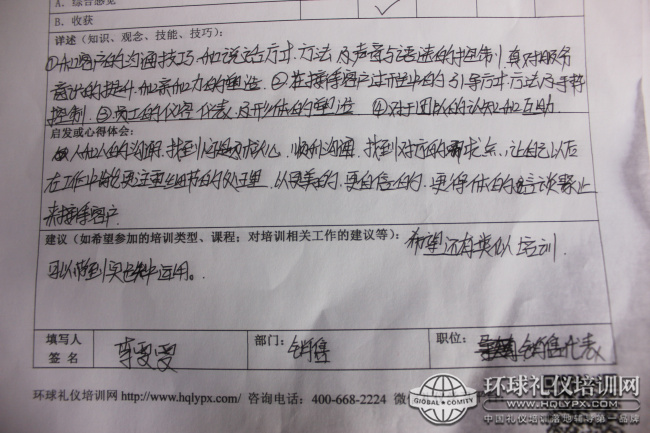 A. 综合感觉
B. 收获
详述（知识、观念、技能、技巧）：
①和客户的沟通技巧、和说话方式、方法及声音与语速的控制 真对服务
意识的提升、和亲和力的塑造 ②在接待客户过程中的引导方式方法及手势
控制 ③员工的仪容仪表及形体的塑造 ④对于团队的认知和互助
启发或心得体会：
人和人的沟通、找到 顺利沟通、找到对方的需求点、让自己以后
在工作中能更注重细节的处理、以更美的、更自信的、更得体的言谈举止
来接待客户
建议（如希望参加的培训类型、课程；对培训相关工作的建议等）：希望还有类似培训
可以 到实 中运用。
填写人 部门：销售 职位： 销售代表
签名 李
环球礼仪培训网 http://www.hqlypx.com/ 咨询电话：400-668-2224 微
GLOBAL COMITY
环球礼仪培训网
WWW.HQLYPX.COM
中国礼仪培训落地辅导第一品牌